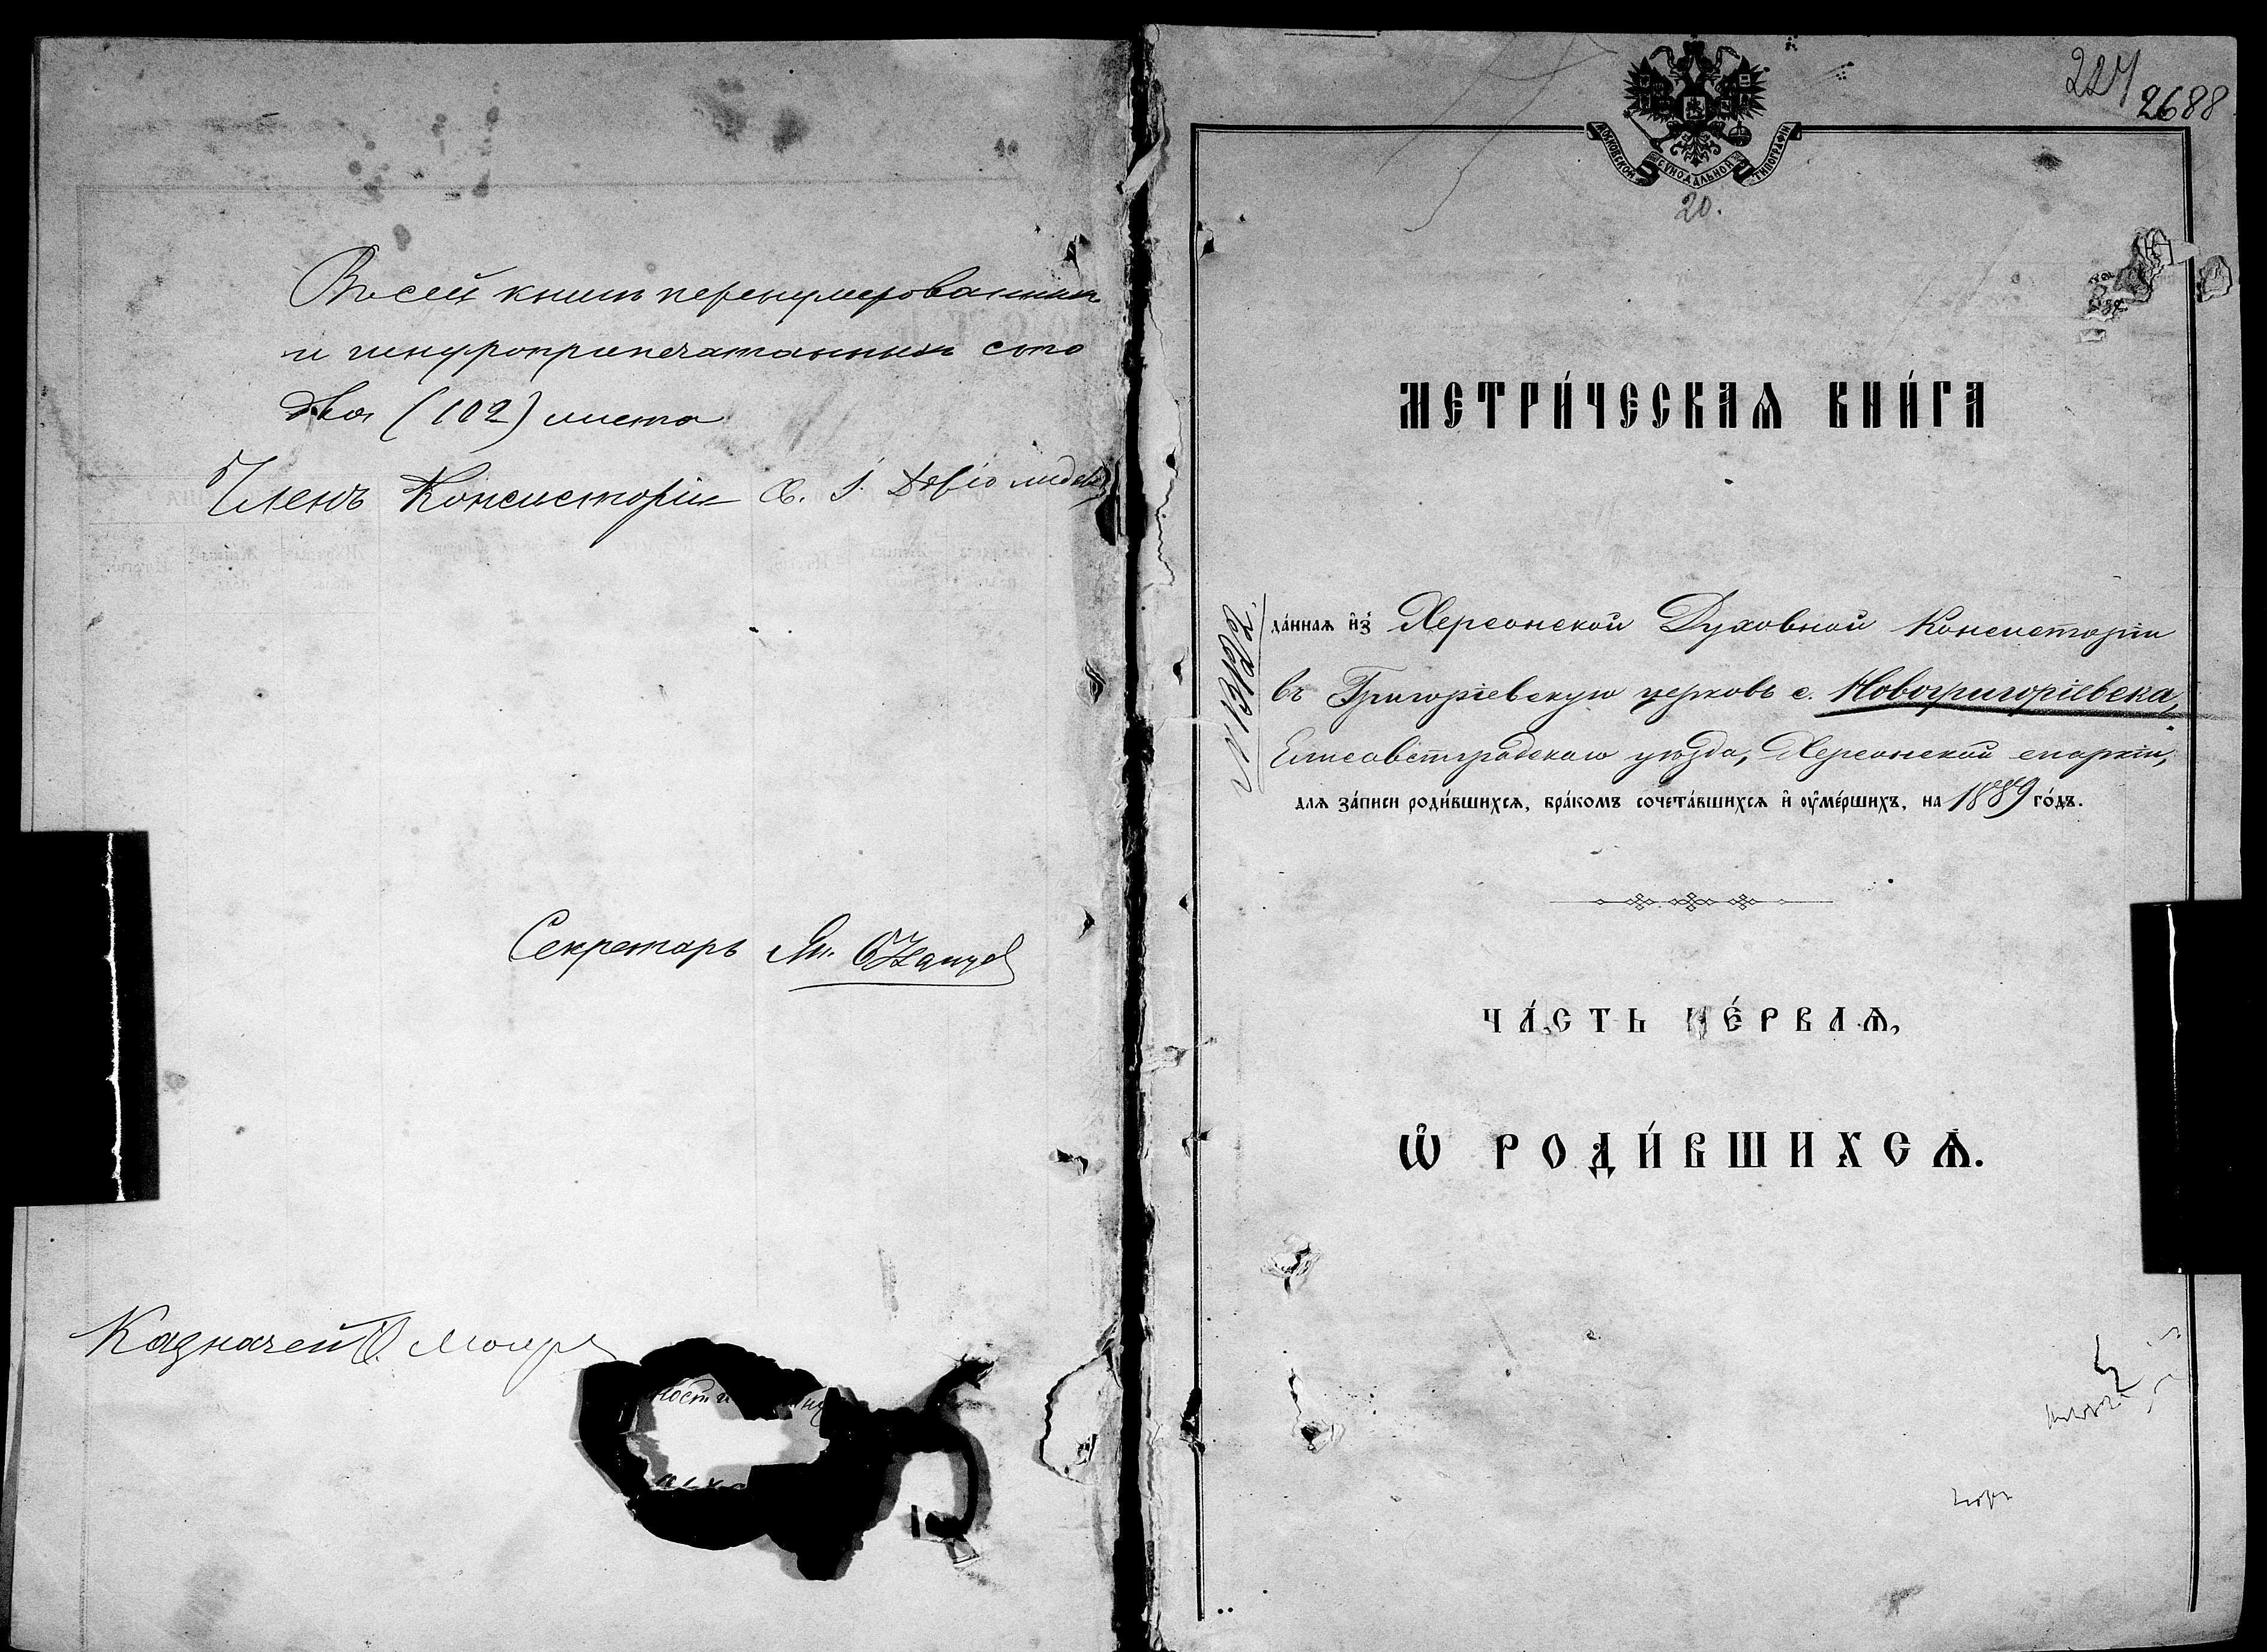 Въ сей книгѣ перенумерованныхъ
и шнуроприпечатанныхъ сто
два (102) листа
Членъ Консисторіи
Секретарь
Казначей
227
2688
МОСКОВСКОЙ СУНОДАЛЬНОЙ ТИПОГРАФІИ
20.
МЕТРИ́ЧЕСКАѦ КНИ́ГА
да́ннаѧ и҆з̾ Херсонской Духовной Консисторіи
въ Григоріевскую церковь с. Новогригоріевска,
Елисаветградскаго уѣзда, Херсонской епархіи,
для за́писи роди́вшихсѧ, бра́комъ сочета́вшихсѧ и҆ ᲂу҆ме́ршихъ, на 1889 го́дъ.
ЧА́СТЬ ПЕ́РВАѦ,
Ѽ РОДИ́ВШИХСѦ.